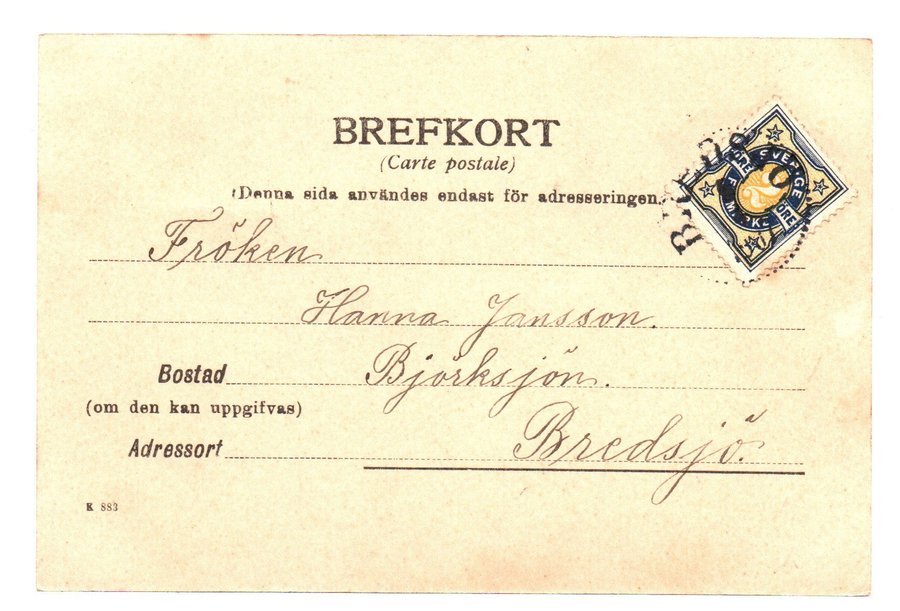 BREFKORT
(Carte postale)
Denna sida användes endast för adresseringen.
SVERGE
2
ÖRE
ÖRE
Fröken
Hanna Jansson.
Bostad Björksjön.
(om den kan uppgifvas)
Adressort Bredsjö.
K 883